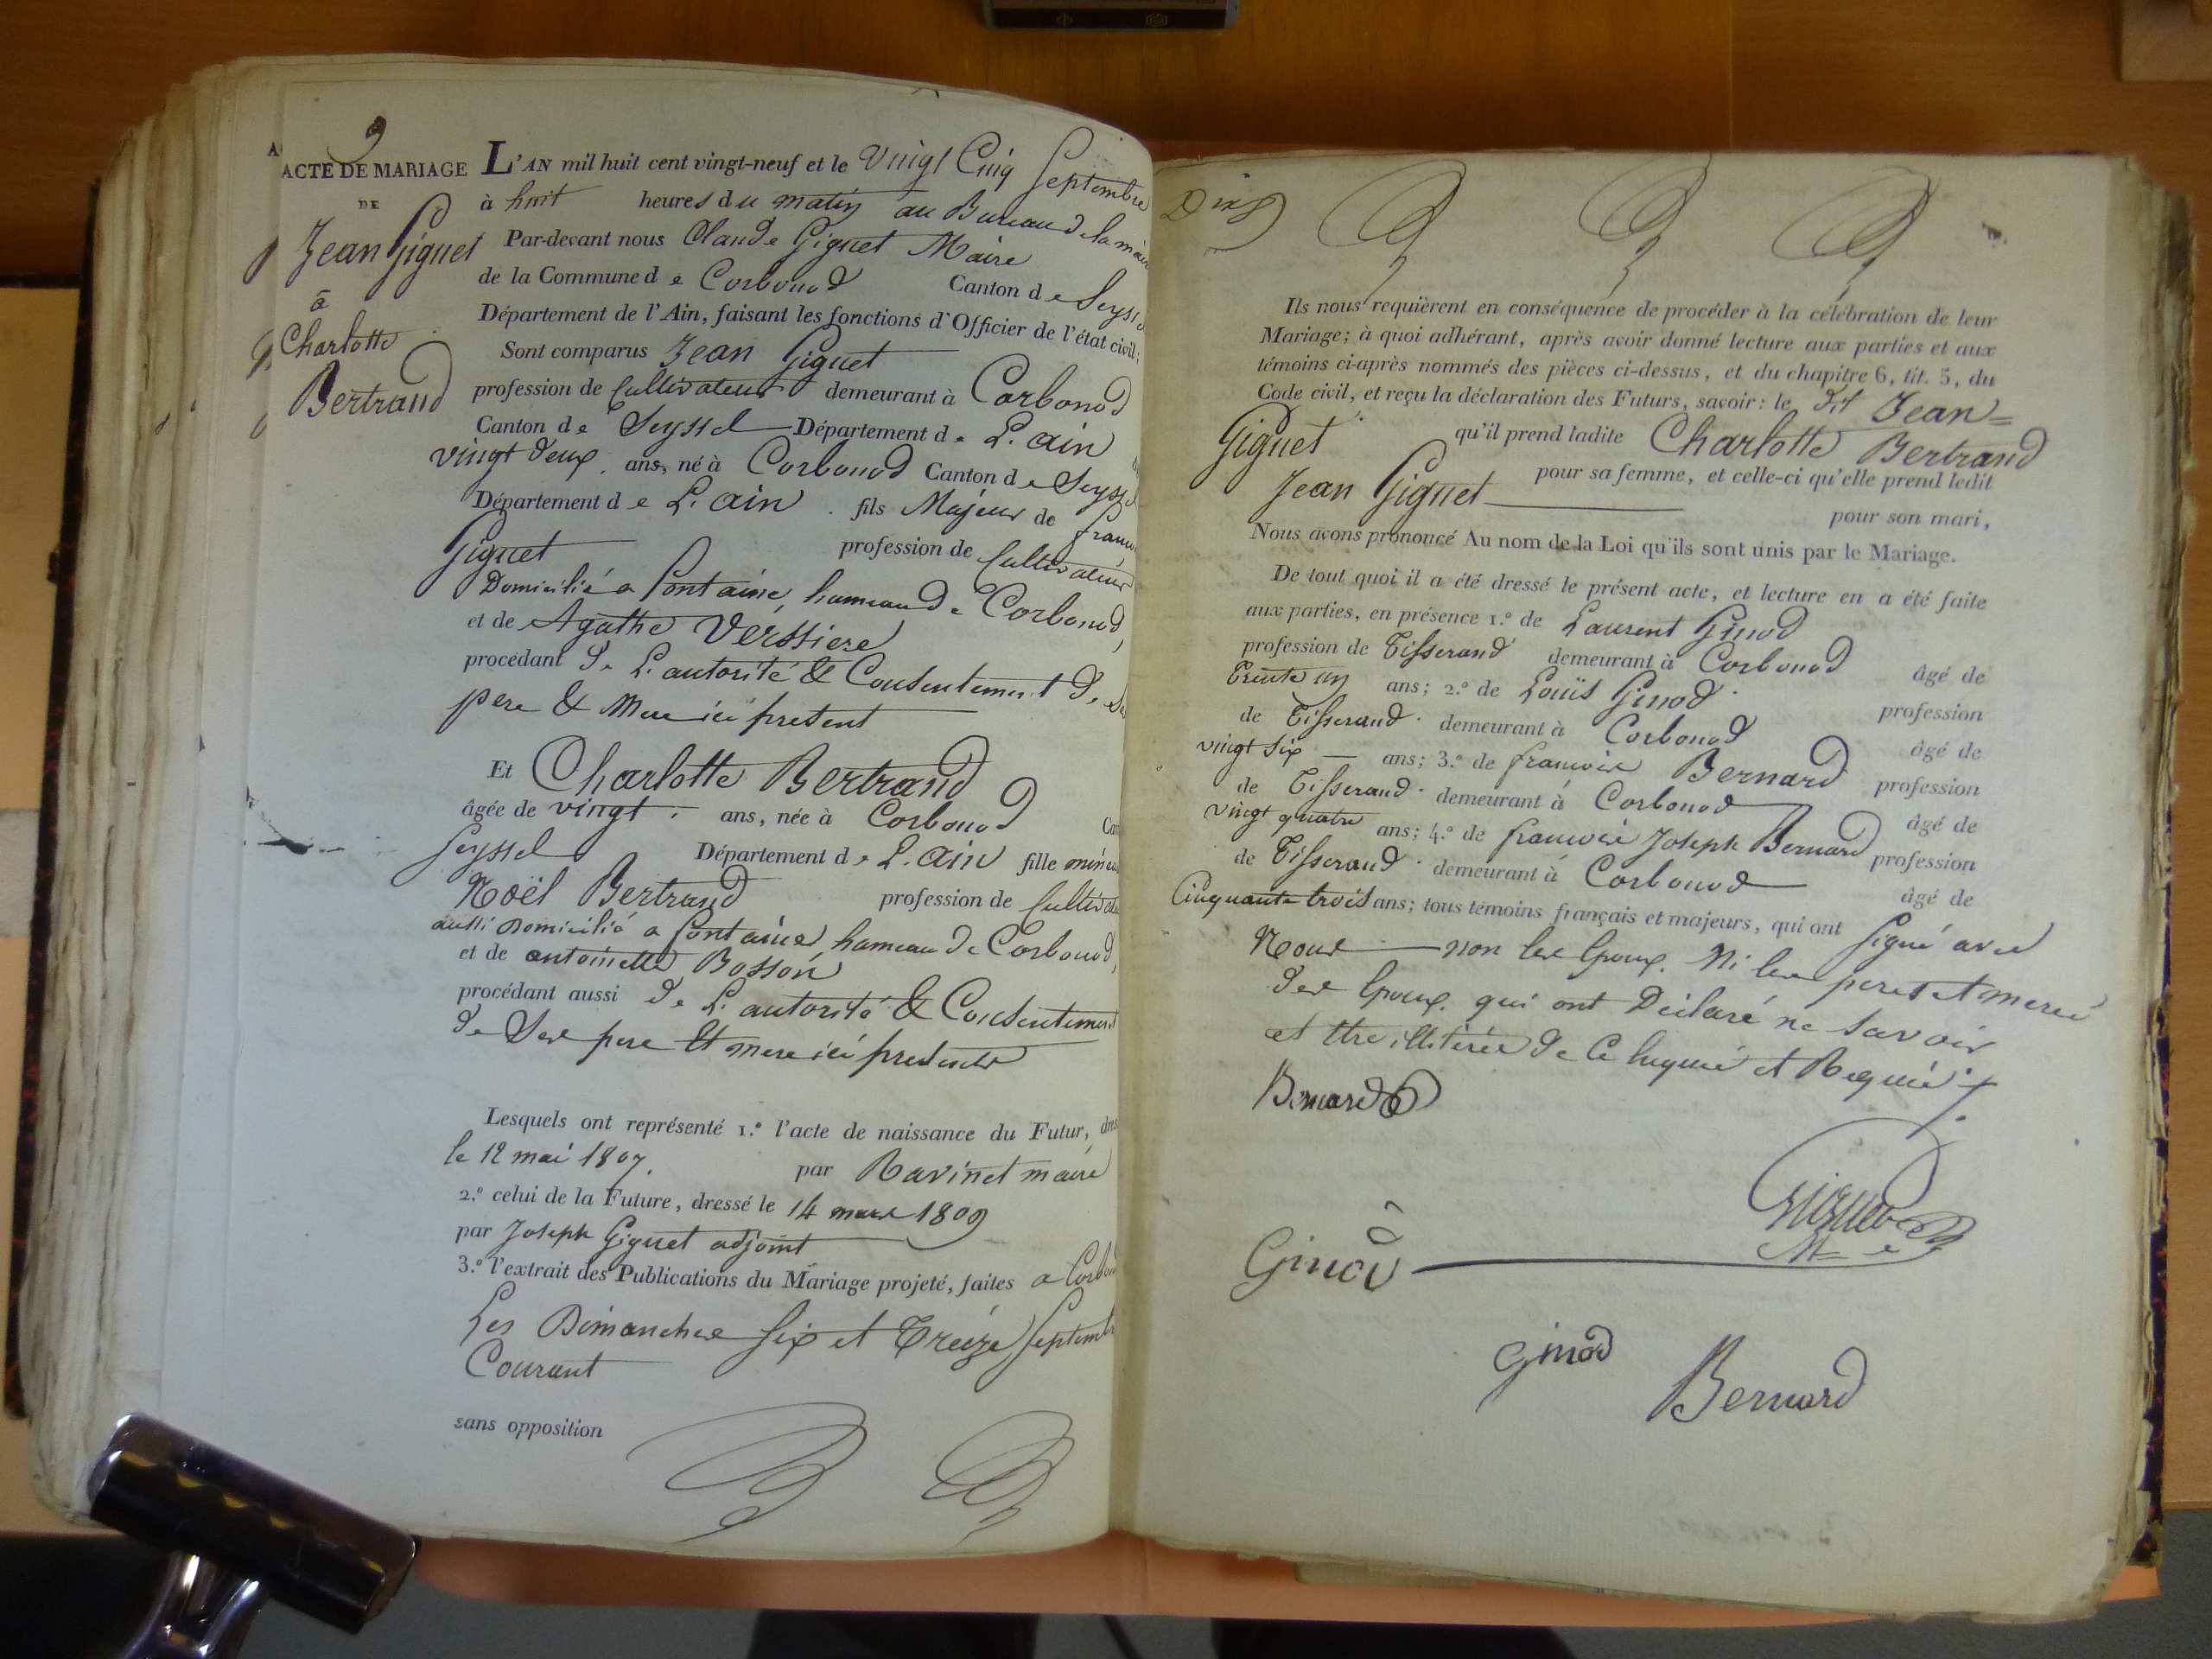 9
ACTE DE MARIAGE
DE
Jean Giguet
à
Charlotte
Bertrand
L'AN mil huit cent vingt-neuf et le Vingt Cinq Septembre
à huit heures du matin au Bureau de la
Par-devant nous Claude Giguet Maire
de la Commune de Corbonod Canton de
Département de l'Ain, faisant les fonctions d'Officier de l'état civil;
Sont comparus Jean Giguet
profession de Cultivateur demeurant à Corbonod
Canton de Seyssel Département de L'ain
vingt deux ans, né à Corbonod Canton de
Département de L'ain fils Majeur de
Giguet profession de Cultivateur
Domicilié a fontaine, hameau de Corbonod,
et de Agathe Verssiere
procédant De L'autorité & Consentement De
pere & Mere ici present
Et Charlotte Bertrand
âgée de vingt ans, née à Corbonod
Seyssel Département de L'ain fille
Noël Bertrand profession de
aussi Domicilié a fontaine, hameau de Corbonod,
et de antoinette Bosson
procédant aussi De L'autorité & Consentement
De Ses pere Et mere ici presents
Lesquels ont représenté 1.º l'acte de naissance du Futur,
le 12 mai 1807. par Ravinet maire
2.º celui de la Future, dressé le 14 mars 1809
par Joseph Giguet adjoint
3.º l'extrait des Publications du Mariage projeté, faites a
Les Dimanches Six et Treize Septembre
Courant
sans opposition
Ils nous requièrent en conséquence de procéder à la célébration de leur
Mariage; à quoi adhérant, après avoir donné lecture aux parties et aux
témoins ci-après nommés des pièces ci-dessus, et du chapitre 6, tit. 5, du
Code civil, et reçu la déclaration des Futurs, savoir: le dit Jean=
Giguet qu'il prend ladite Charlotte Bertrand
pour sa femme, et celle-ci qu'elle prend ledit
Jean Giguet pour son mari,
Nous avons prononcé Au nom de la Loi qu'ils sont unis par le Mariage.
De tout quoi il a été dressé le présent acte, et lecture en a été faite
aux parties, en présence 1.º de Laurent Ginod
profession de Tisserand demeurant à Corbonod âgé de
Trente un ans; 2.º de Louis Ginod profession
de Tisserand demeurant à Corbonod âgé de
vingt six ans; 3.º de francois Bernard profession
de Tisserand demeurant à Corbonod âgé de
vingt quatre ans; 4.º de francois Joseph Bernard profession
de Tisserand demeurant à Corbonod âgé de
Cinquante trois ans; tous témoins français et majeurs, qui ont Signé avec
Nous non les Epoux. Ni les peres et meres
des Epoux. qui ont Déclaré ne Savoir
et Etre illitérés De Ce Enquis et Requis
Bernard
Giguet
Ginod
Ginod
Bernard